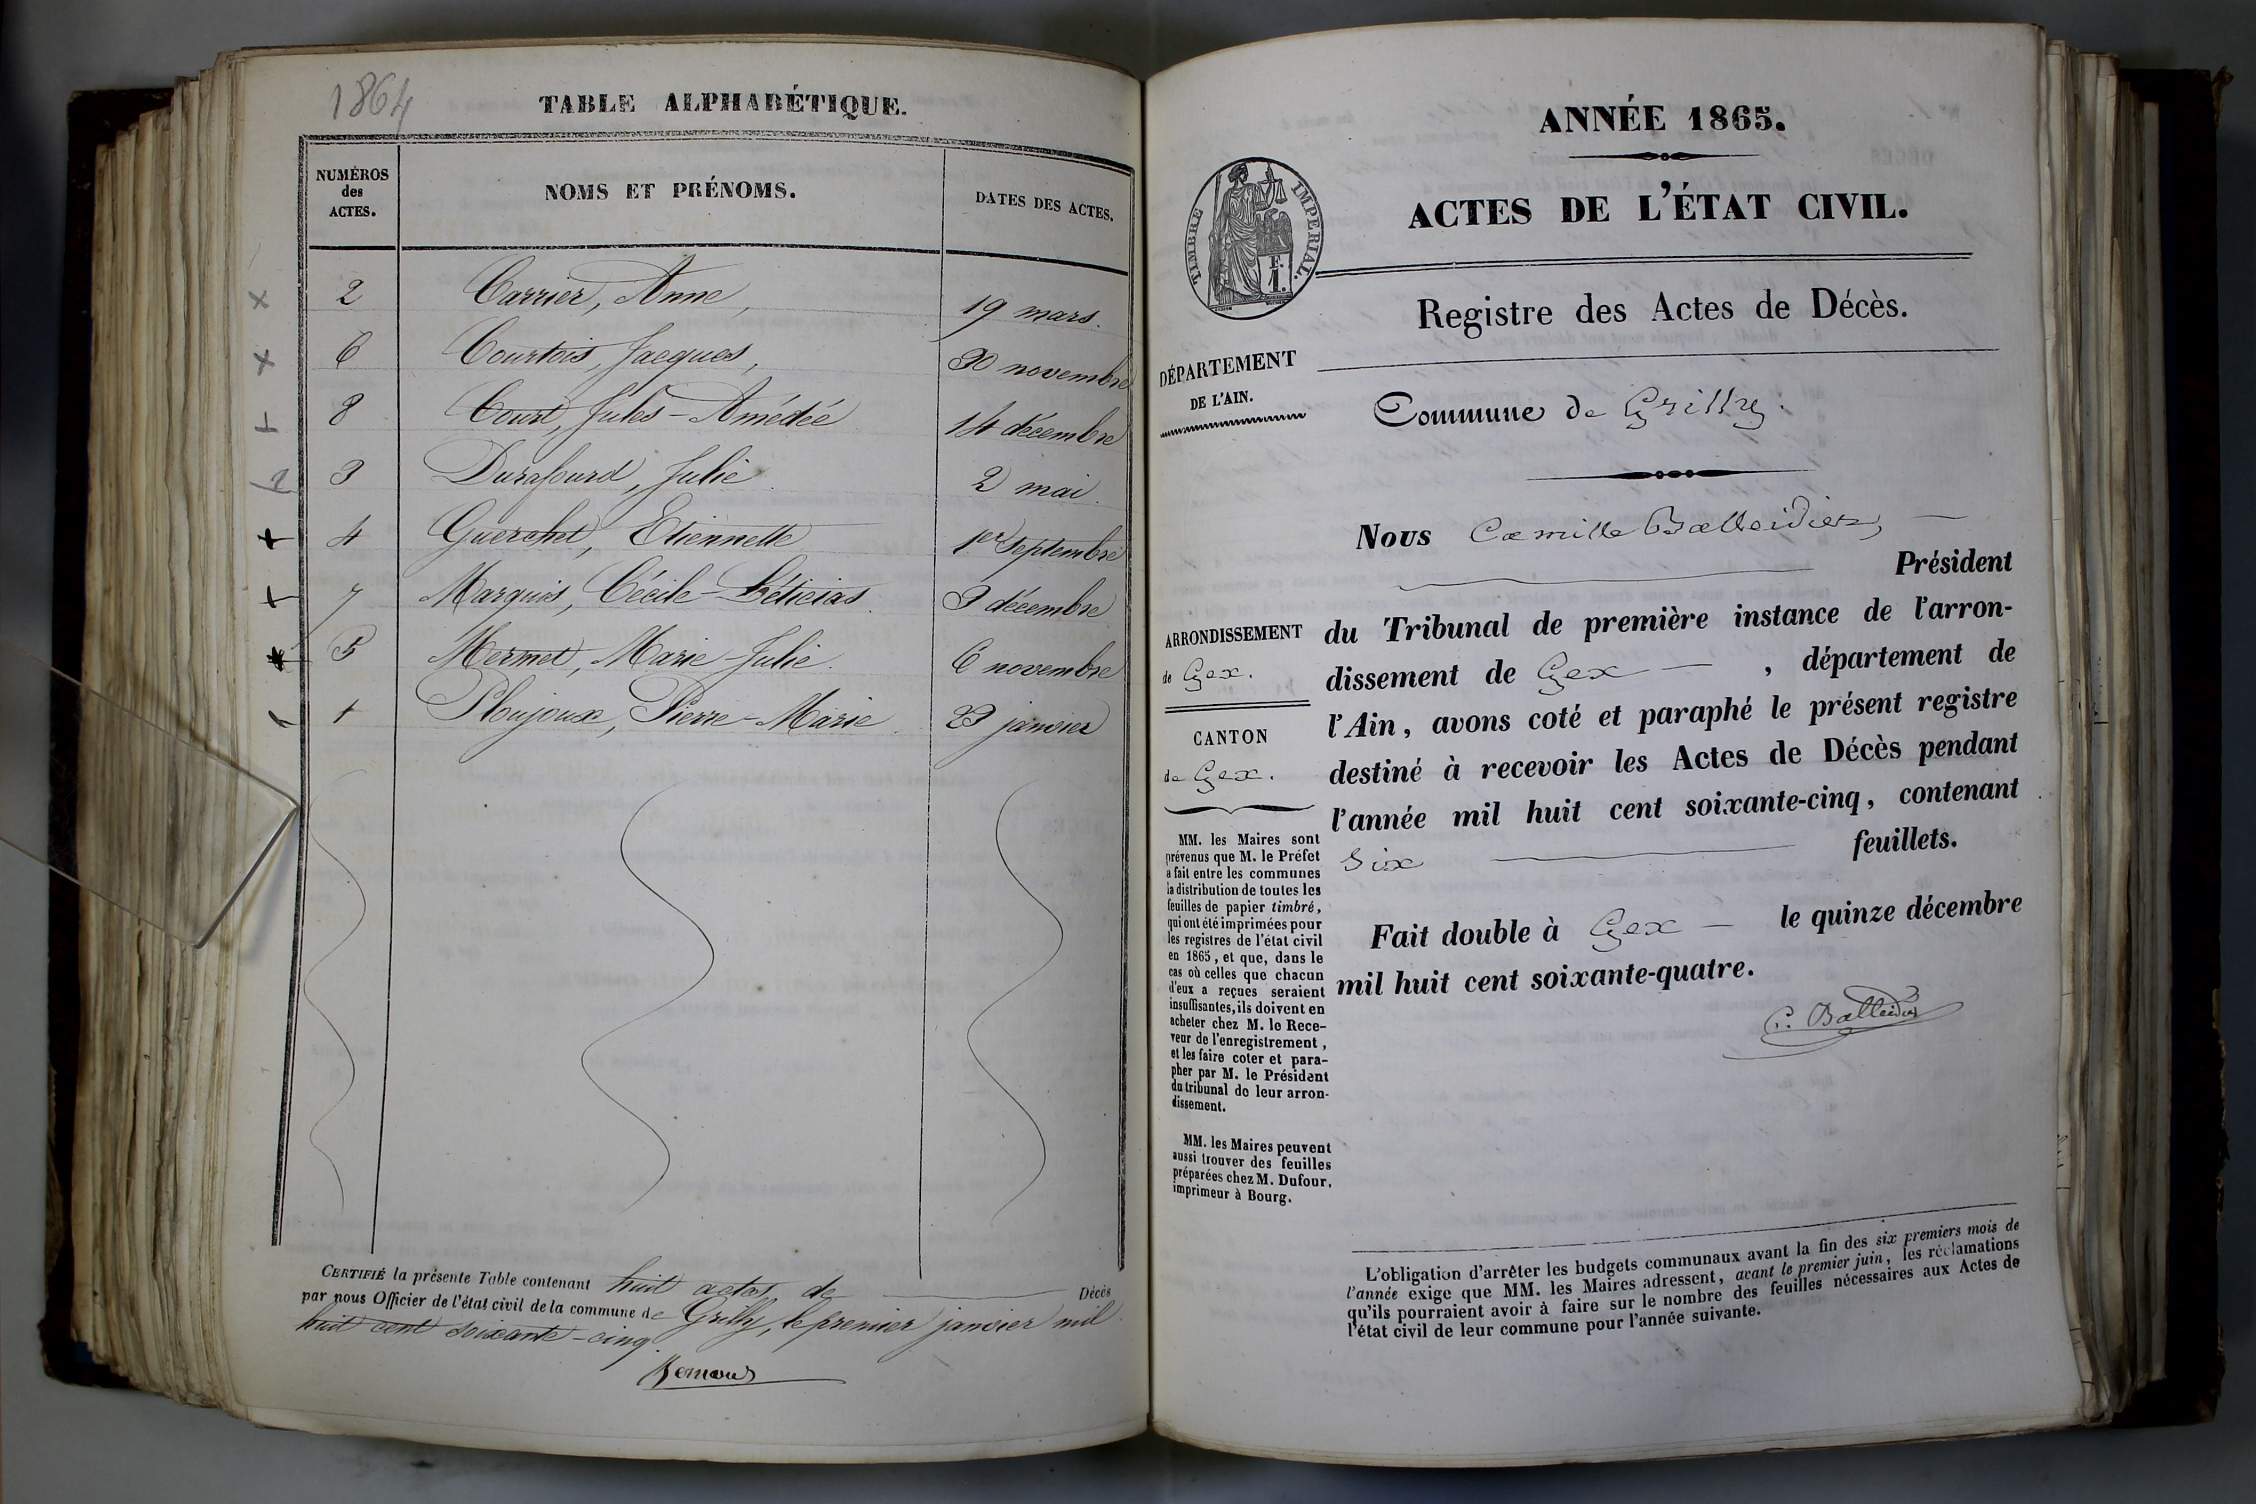 1864
TABLE ALPHABÉTIQUE.
NUMÉROS
des
ACTES.
NOMS ET PRÉNOMS.
DATES DES ACTES.
2 Carrier, Anne, 19 mars.
6 Courtois, Jacques, 30 novembre
8 Court, Jules-Amédée 14 décembre
3 Durafourd, Julie 2 mai.
4 Guerchet, Etiennette 1er Septembre
7 Marquis, Cécile-Léticias 3 décembre
5 Mermet, Marie-Julie. 6 novembre
1 Ploujoux, Pierre-Marie 23 janvier
CERTIFIÉ la présente Table contenant huit actes de Décès
par nous Officier de l'état civil de la commune de Grilly, le premier janvier mil
huit cent soixante-cinq.
ANNÉE 1865.
TIMBRE IMPÉRIAL.
F.
1.
ACTES DE L'ÉTAT CIVIL.
Registre des Actes de Décès.
DÉPARTEMENT
DE L'AIN.
Commune de Grilly.
ARRONDISSEMENT
de Gex.
CANTON
de Gex.
MM. les Maires sont
prévenus que M. le Préfet
a fait entre les communes
la distribution de toutes les
feuilles de papier timbré,
qui ont été imprimées pour
les registres de l'état civil
en 1865, et que, dans le
cas où celles que chacun
d'eux a reçues seraient
insuffisantes, ils doivent en
acheter chez M. le Rece-
veur de l'enregistrement,
et les faire coter et para-
pher par M. le Président
du tribunal de leur arron-
dissement.
MM. les Maires peuvent
aussi trouver des feuilles
préparées chez M. Dufour,
imprimeur à Bourg.
Nous Camille Balleidier,
Président
du Tribunal de première instance de l'arron-
dissement de Gex, département de
l'Ain, avons coté et paraphé le présent registre
destiné à recevoir les Actes de Décès pendant
l'année mil huit cent soixante-cinq, contenant
Six feuillets.
Fait double à Gex le quinze décembre
mil huit cent soixante-quatre.
C. Balleidier
L'obligation d'arrêter les budgets communaux avant la fin des six premiers mois de
l'année exige que MM. les Maires adressent, avant le premier juin, les réclamations
qu'ils pourraient avoir à faire sur le nombre des feuilles nécessaires aux Actes de
l'état civil de leur commune pour l'année suivante.